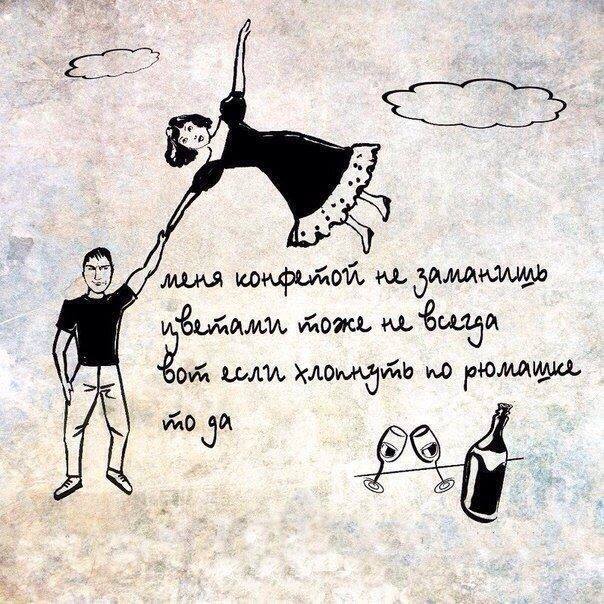 меня конфетой не заманишь
цветами тоже не всегда
вот если хлопнуть по рюмашке
то да